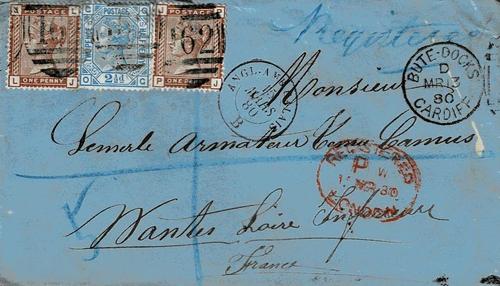 POSTAGE
ONE PENNY
POSTAGE
2½
POSTAGE
ONE PENNY
62
Registered
BUTE-DOCKS
D
MR 13
80
CARDIFF
ANGL-
80
B
Monsieur
Lemerle Armateur
REGISTERED
MR 80
LONDON
Nantes Loire Inférieure
France